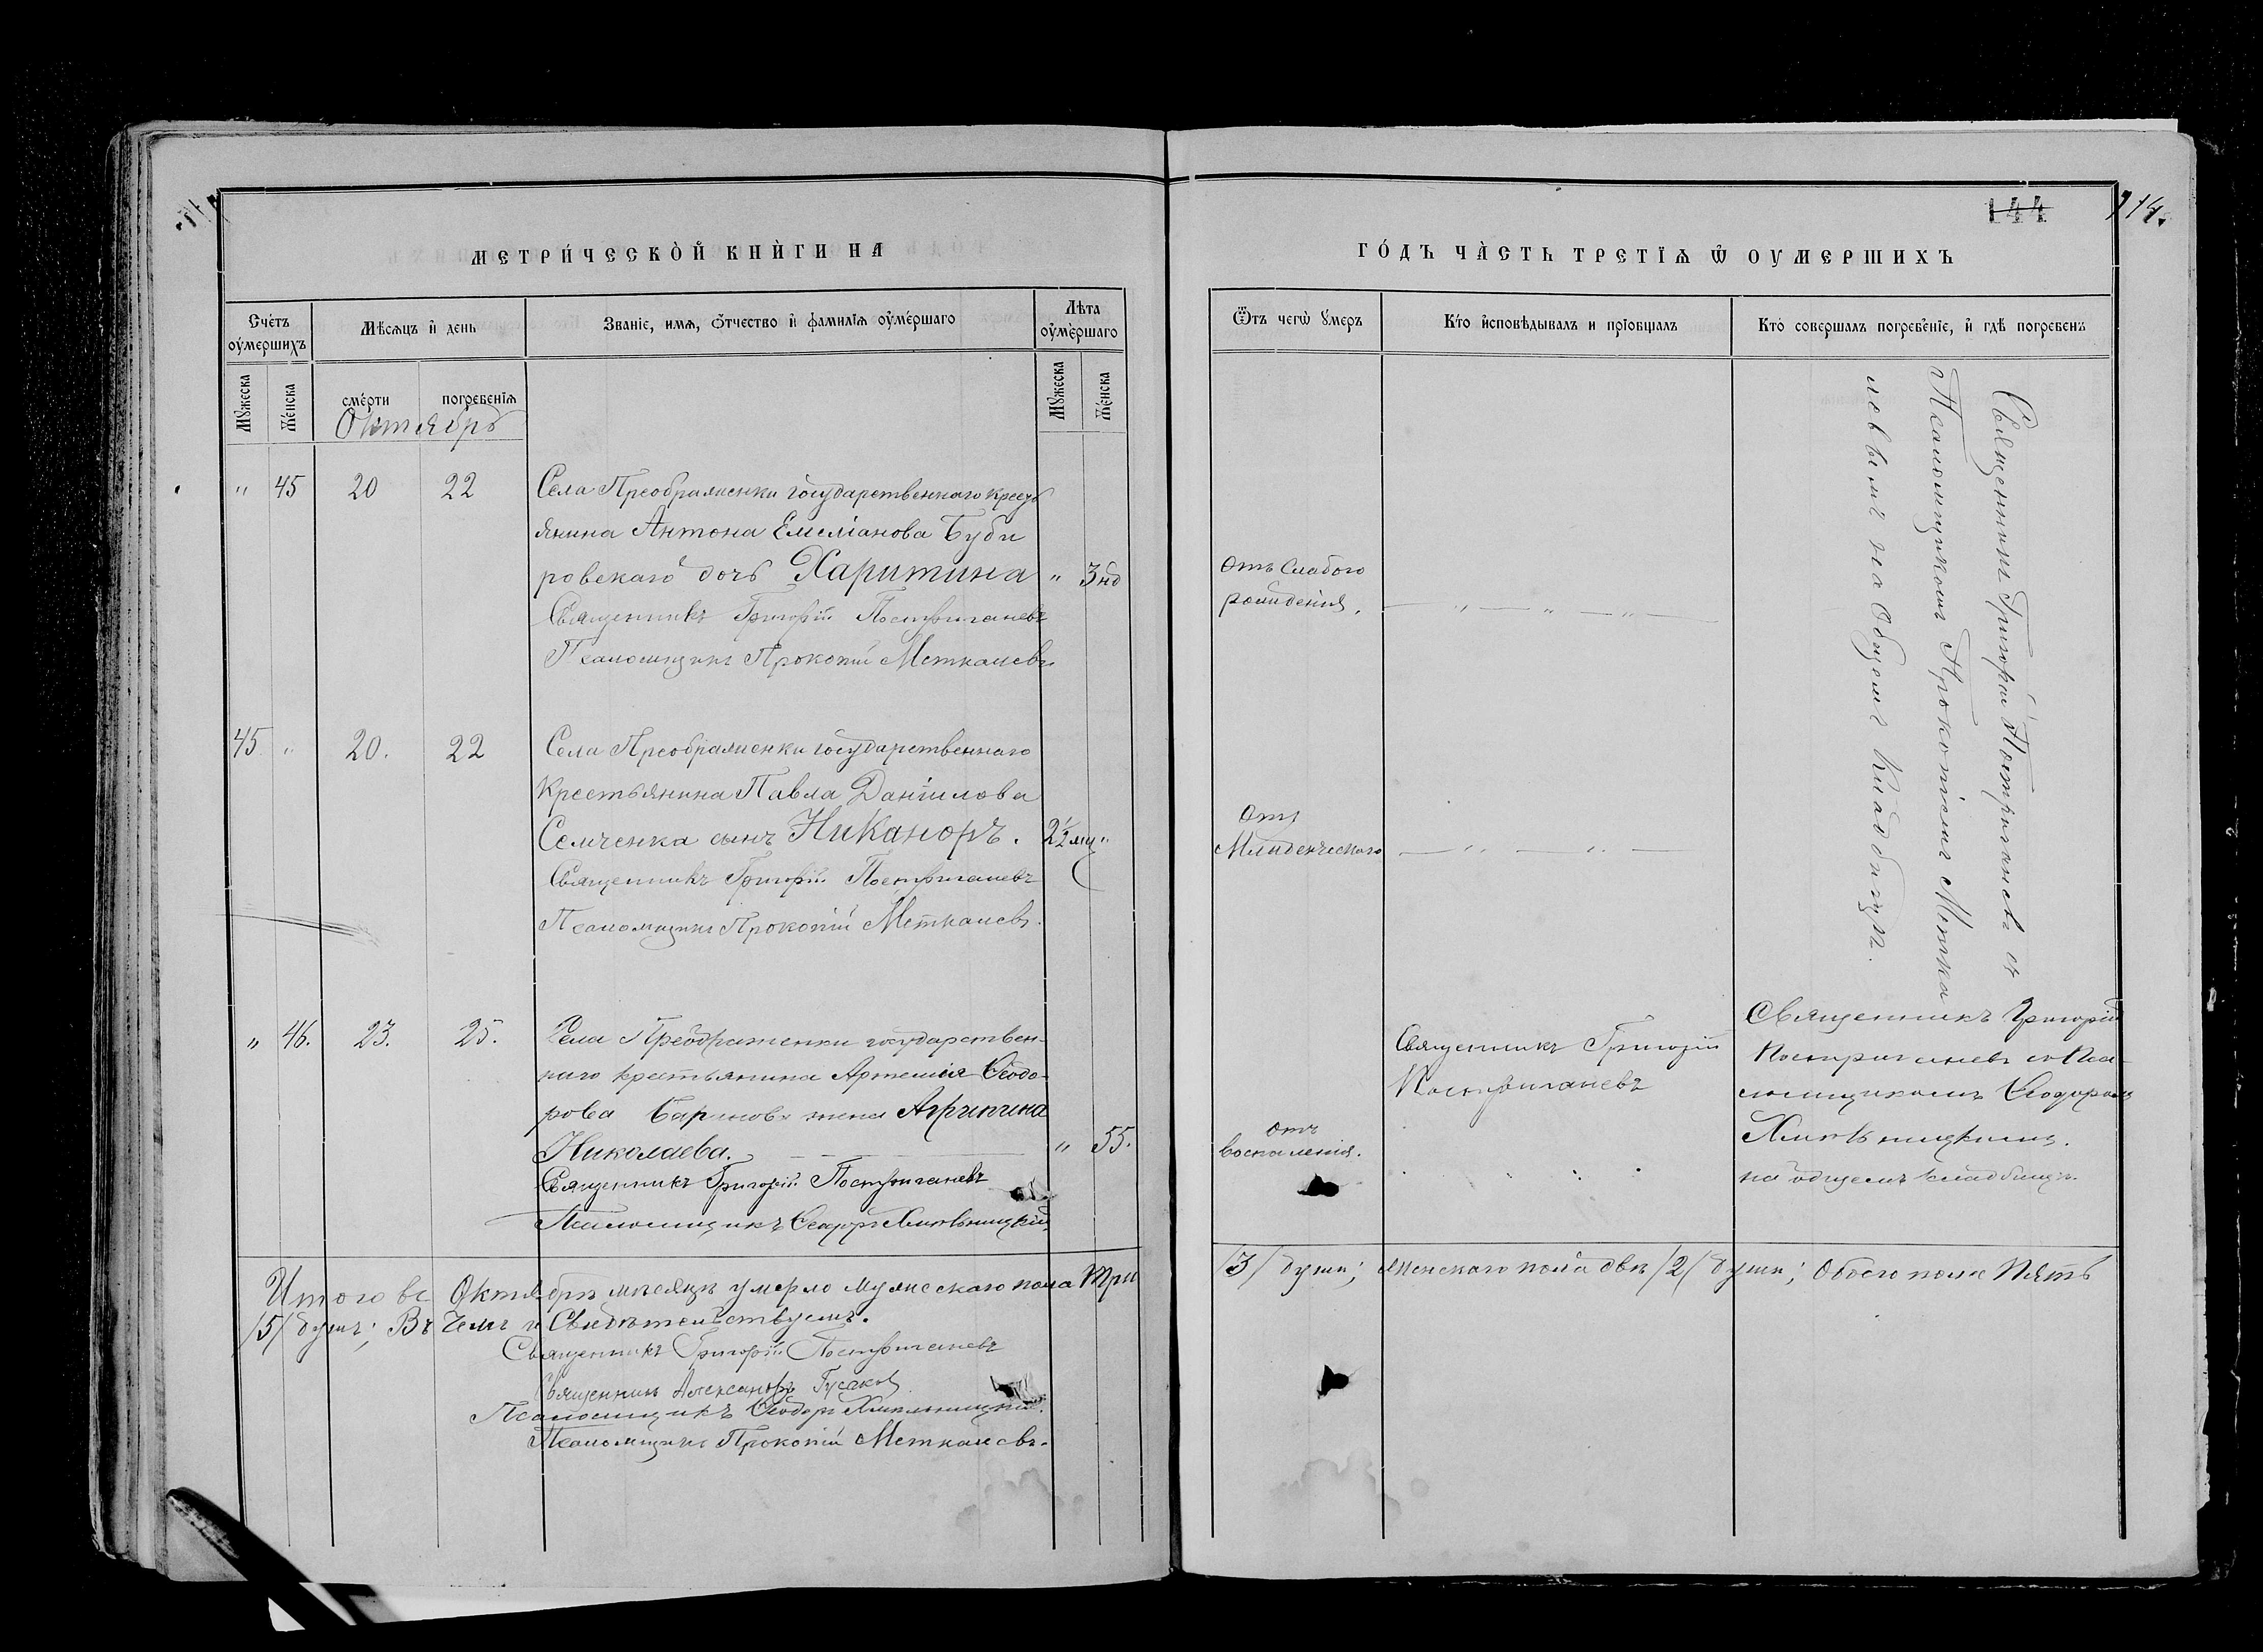 144 214.
МЕТРИ́ЧЕСКОЙ КНИ́ГИ НА
ГО́ДЪ ЧА́СТЬ ТРЕТІѦ Ѡ ОУМЕРШИХЪ
Сче́тъ оу҆ме́ршихъ
Мѣсѧцъ и҆ день
Званіе, имѧ, ѻ҆́тчество и҆ фамиліѧ оу҆ме́ршаго
Лѣта оу҆ме́ршаго
Ѿъ чегѡ̀ ᲂу҆меръ
Кто и҆сповѣ́дывалъ и прїобщалъ
Кто̀ совершалъ погребе́нїе, и҆ гдѣ̀ погребенъ
Мꙋжеска
Же́нска
сме́рти
погребенїѧ
Мꙋжеска
Же́нска
Октябрь
" 45 20 22 Села Преображенки государственнаго крест
янина Антона Емеліанова Буби
ровскаго дочь Харитина " 3 нд
Священникъ Григорій Постриганевъ
Псаломщикъ Прокопій Меткалевъ
Отъ слабого
рожденія.
Священникъ Григорій Постриганевъ съ
Псаломщикомъ Прокопіемъ Метка
левымъ на общемъ кладбищѣ.
45 " 20. 22 Села Преображенки государственнаго
Крестьянина Павла Даніилова
Семченка сынъ Никаноръ. 2½ мц "
Священникъ Григорій Постриганевъ
Псаломщикъ Прокопій Меткалевъ.
Отъ
Младенческаго
" 46. 23. 25. Села Преображенки государствен-
наго крестьянина Артемія Ѳеодо-
рова жена Агрипина
Николаева. " 55.
Священникъ Григорій Постриганевъ
Псаломщикъ Ѳеодоръ Хмѣльницкій
отъ
воспаленія.
Священникъ Григорій
Постриганевъ
Священникъ Григорій
Постриганевъ съ Пса-
ломщикомъ Ѳеодоромъ
Хмѣльницкимъ.
на общемъ кладбищѣ.
Итого въ Октябрѣ мѣсяцѣ умерло мужескаго пола три /3/ души; женскаго пола двѣ /2/ души; обоего пола пять
/5/ душъ; Въ чемъ и Свидѣтельствуемъ.
Священникъ Григорій Постриганевъ
Священникъ Александръ Гусаковъ
Псаломщикъ Ѳеодоръ Хмельницкій.
Псаломщикъ Прокопій Меткалевъ.